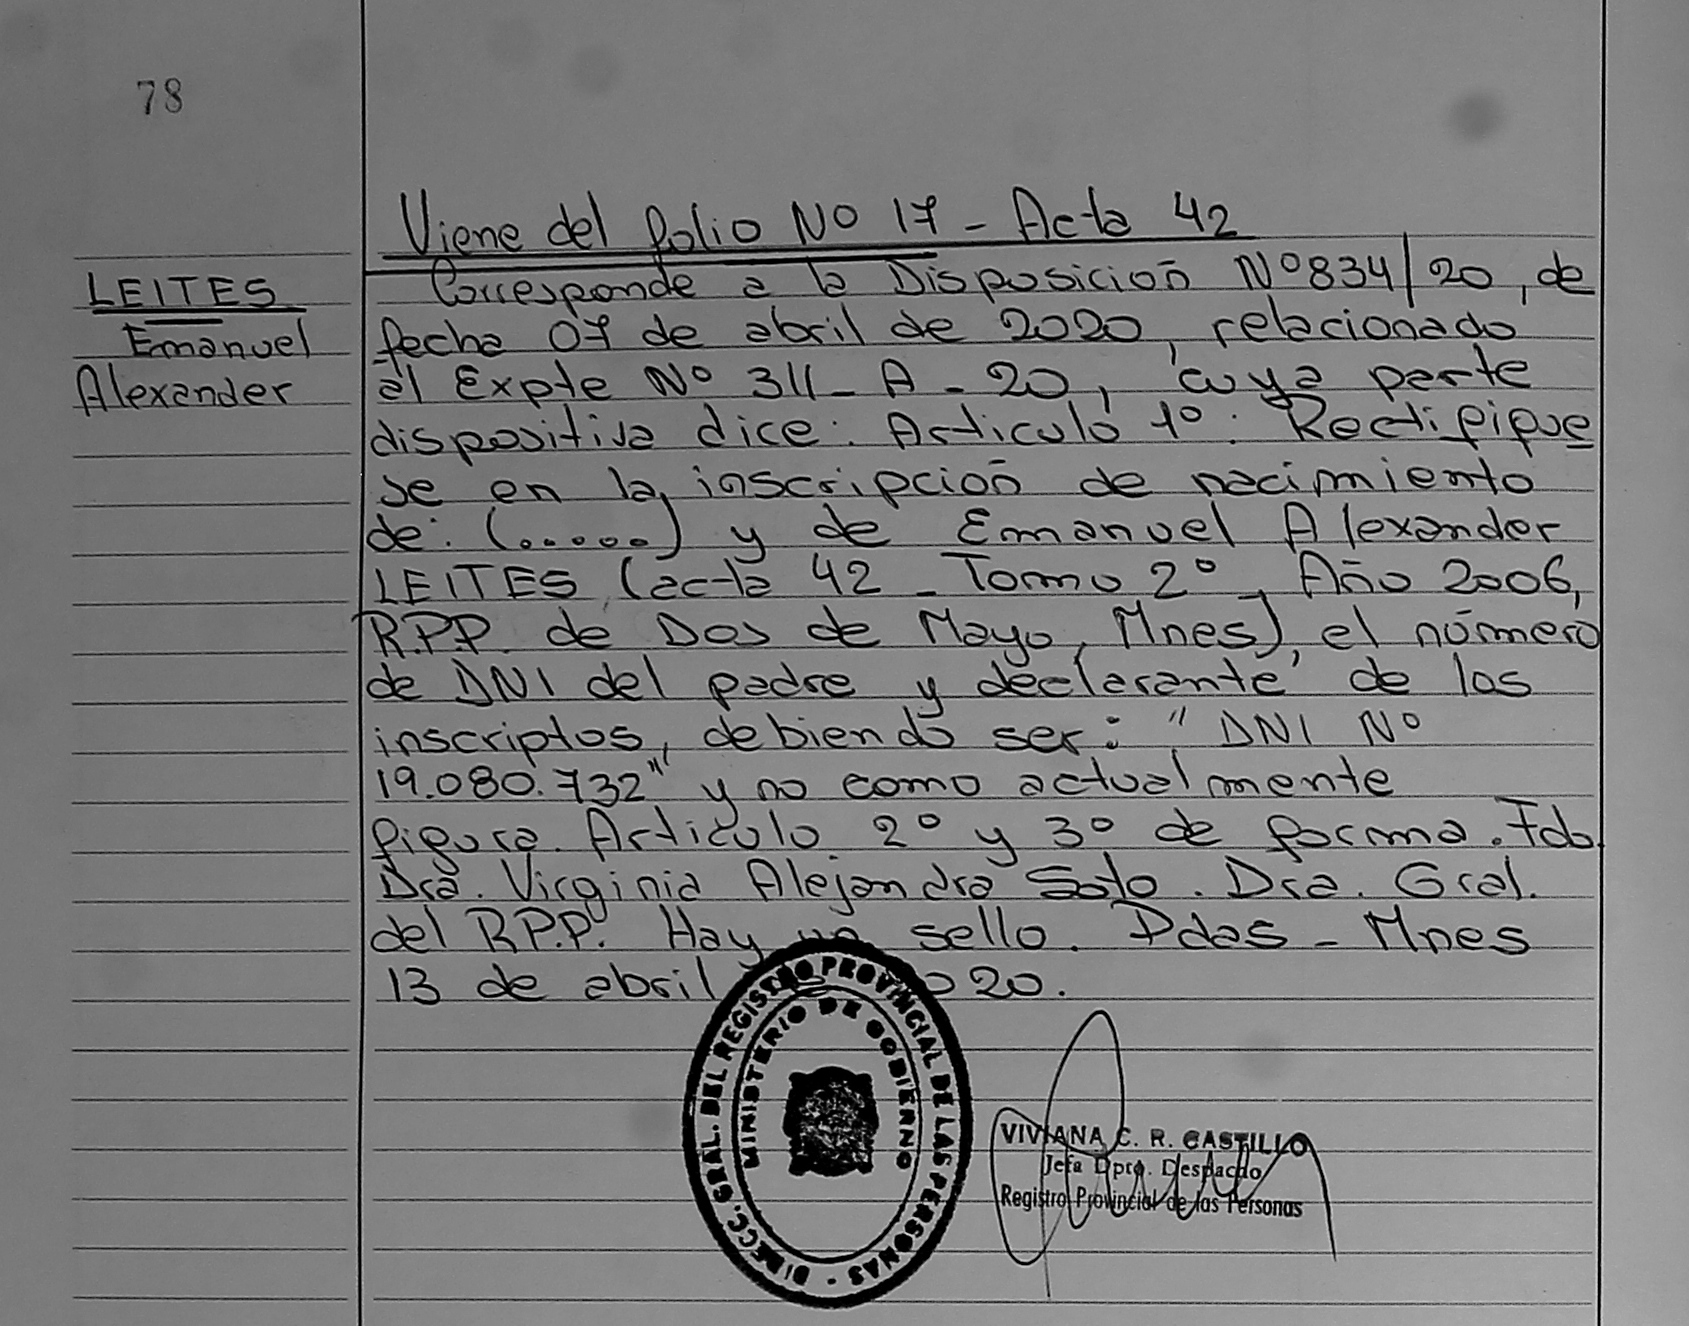 78
Viene del folio No 17 - Acta 42
LEITES
Emanuel
Alexander
Corresponde a la Disposición Nº 834/20, de
fecha 07 de abril de 2020, relacionado
al Expte Nº 311-A-20, cuya parte
dispositiva dice: Articulo 1º: Rectifique
se en la inscripción de nacimiento
de: (......) y de Emanuel Alexander
LEITES (acta 42 - Tomo 2º, Año 2006,
R.P.P. de Dos de Mayo, Mnes), el número
de DNI del padre y declarante de los
inscriptos, debiendo ser: "DNI Nº
19.080.732" y no como actualmente
figura. Articulo 2º y 3º de forma. Fdo.
Dra. Virginia Alejandra Soto. Dra. Gral.
del R.P.P. Hay un sello. Pdas - Mnes
13 de abril de 2020.
DIRECC. GRAL. DEL REGISTRO PROVINCIAL DE LAS PERSONAS
MINISTERIO DE GOBIERNO
VIVIANA C. R. CASTILLO
Jefa Dpto. Despacho
Registro Provincial de las Personas